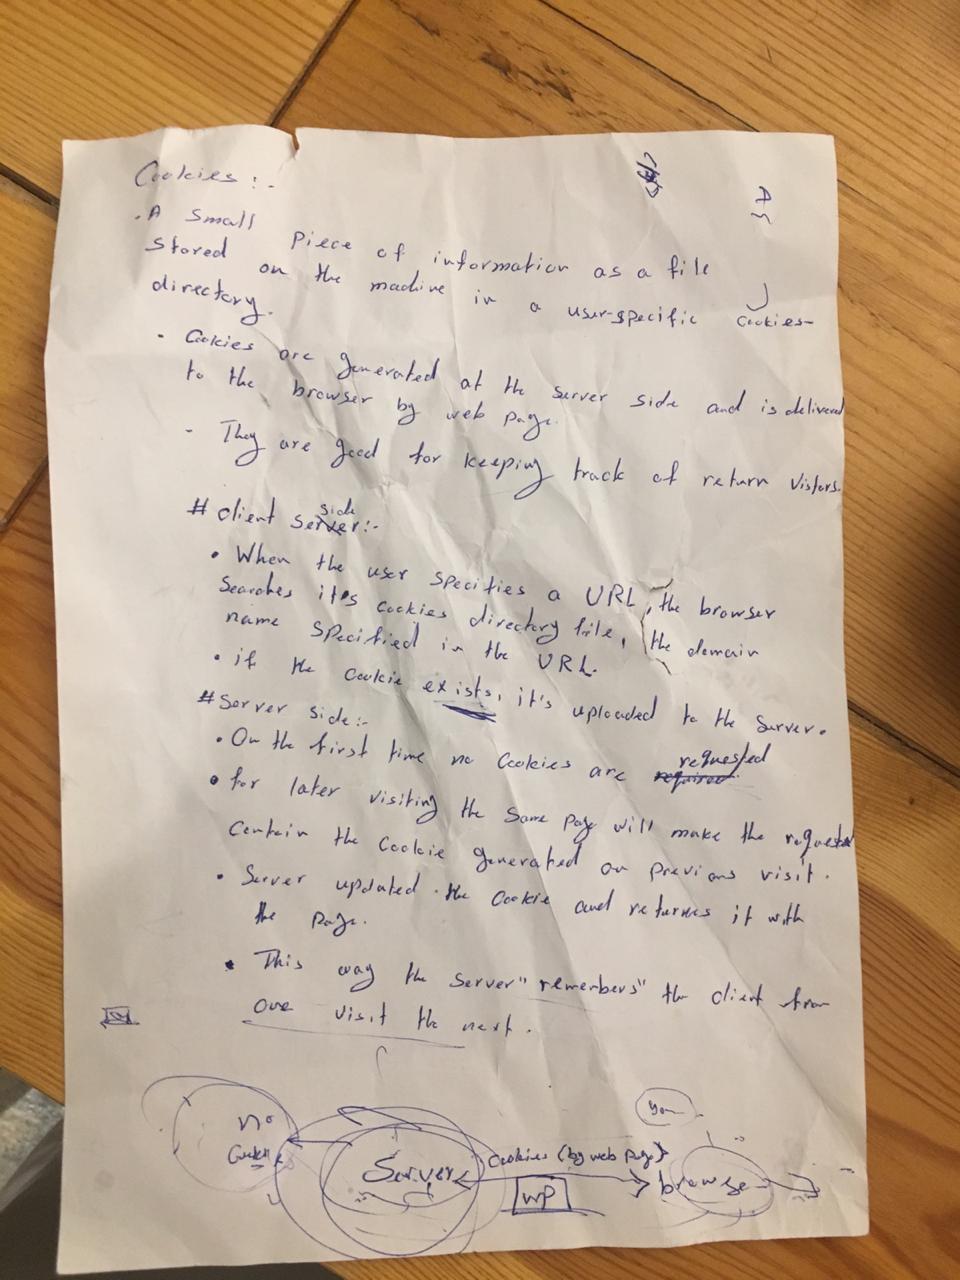 Cookies :-
A
. A small piece of information as a file
stored on the machine in a user-specific Cookies-
directory.
- Cookies are generated at the server side and is delivered
to the browser by web page.
- They are good for keeping track of return vistors.
# client side :-
• When the user specifies a URL, the browser
searches it's cookies directory file, the domain
name specified in the URL.
• if the cookie exists, it's uploaded to the server.
# Server side :-
• On the first time no Cookies are requested
• for later visiting the same page will make the request
contain the cookie generated on previous visit.
• Server updated the cookie and returnes it with
the page.
• This way the server "remembers" the client from
one visit the next.
You
no
Cookie
Server
Cookies (by web page)
WP
browse